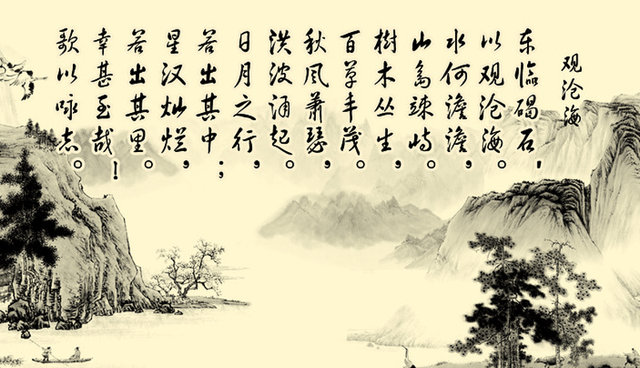 观沧海
东临碣石,
以观沧海。
水何澹澹,
山岛竦峙。
樹木丛生,
百草丰茂。
秋风萧瑟,
洪波涌起。
日月之行,
若出其中;
星汉灿烂,
若出其里。
幸甚至哉!
歌以咏志。